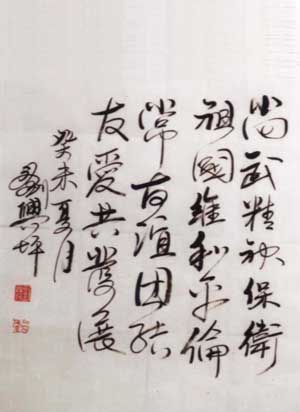 尚武精神保衛
祖國維和平倫
常有誼团結
友愛共發展
癸未夏月
劉興坪